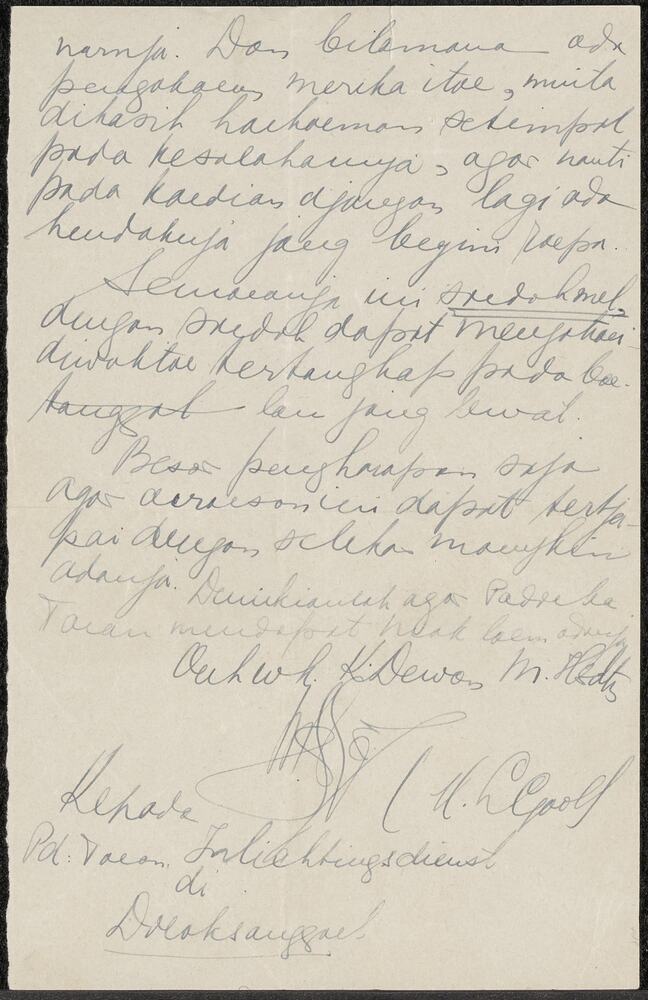 narnja. Dan bilamana ada
pengakoean merika itoe, minta
dikasih hoekoeman setimpal
pada kesalahannja, agar nanti
pada kaedian djangan lagi ada
hendaknja jang begini roepa.
Semoeanja ini soedah
dengan soedah dapat mengakoei
diwaktoe tertangkap pada boe-
tanggal lan jang lewat.
Besar pengharapan saja
agar ini dapat tertja-
pai dengan selekas moengkin
adanja. Demikianlah agar Paddoeka
Toean mendapat adanja
K. Dewan M.
(
Kepada
Pd: Toean Inlichtingsdienst
di
Doloksanggoel